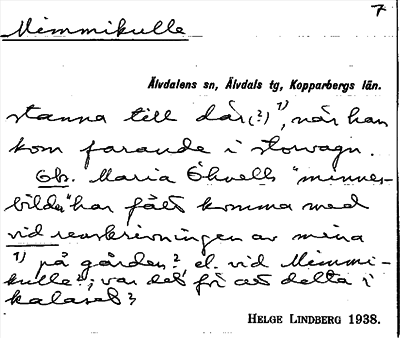 7
Mimmikulle
Älvdalens sn, Älvdals tg, Kopparbergs län.
stanna till där(?) 1), när han
kom farande i storvagn.
Ob. Maria Ehvells "minnes-
bilder" har fått komma med
vid renskrivningen av mina
1) på gården? el. vid Mimmi-
kulle?; var det för att delta i
kalaset?
HELGE LINDBERG 1938.